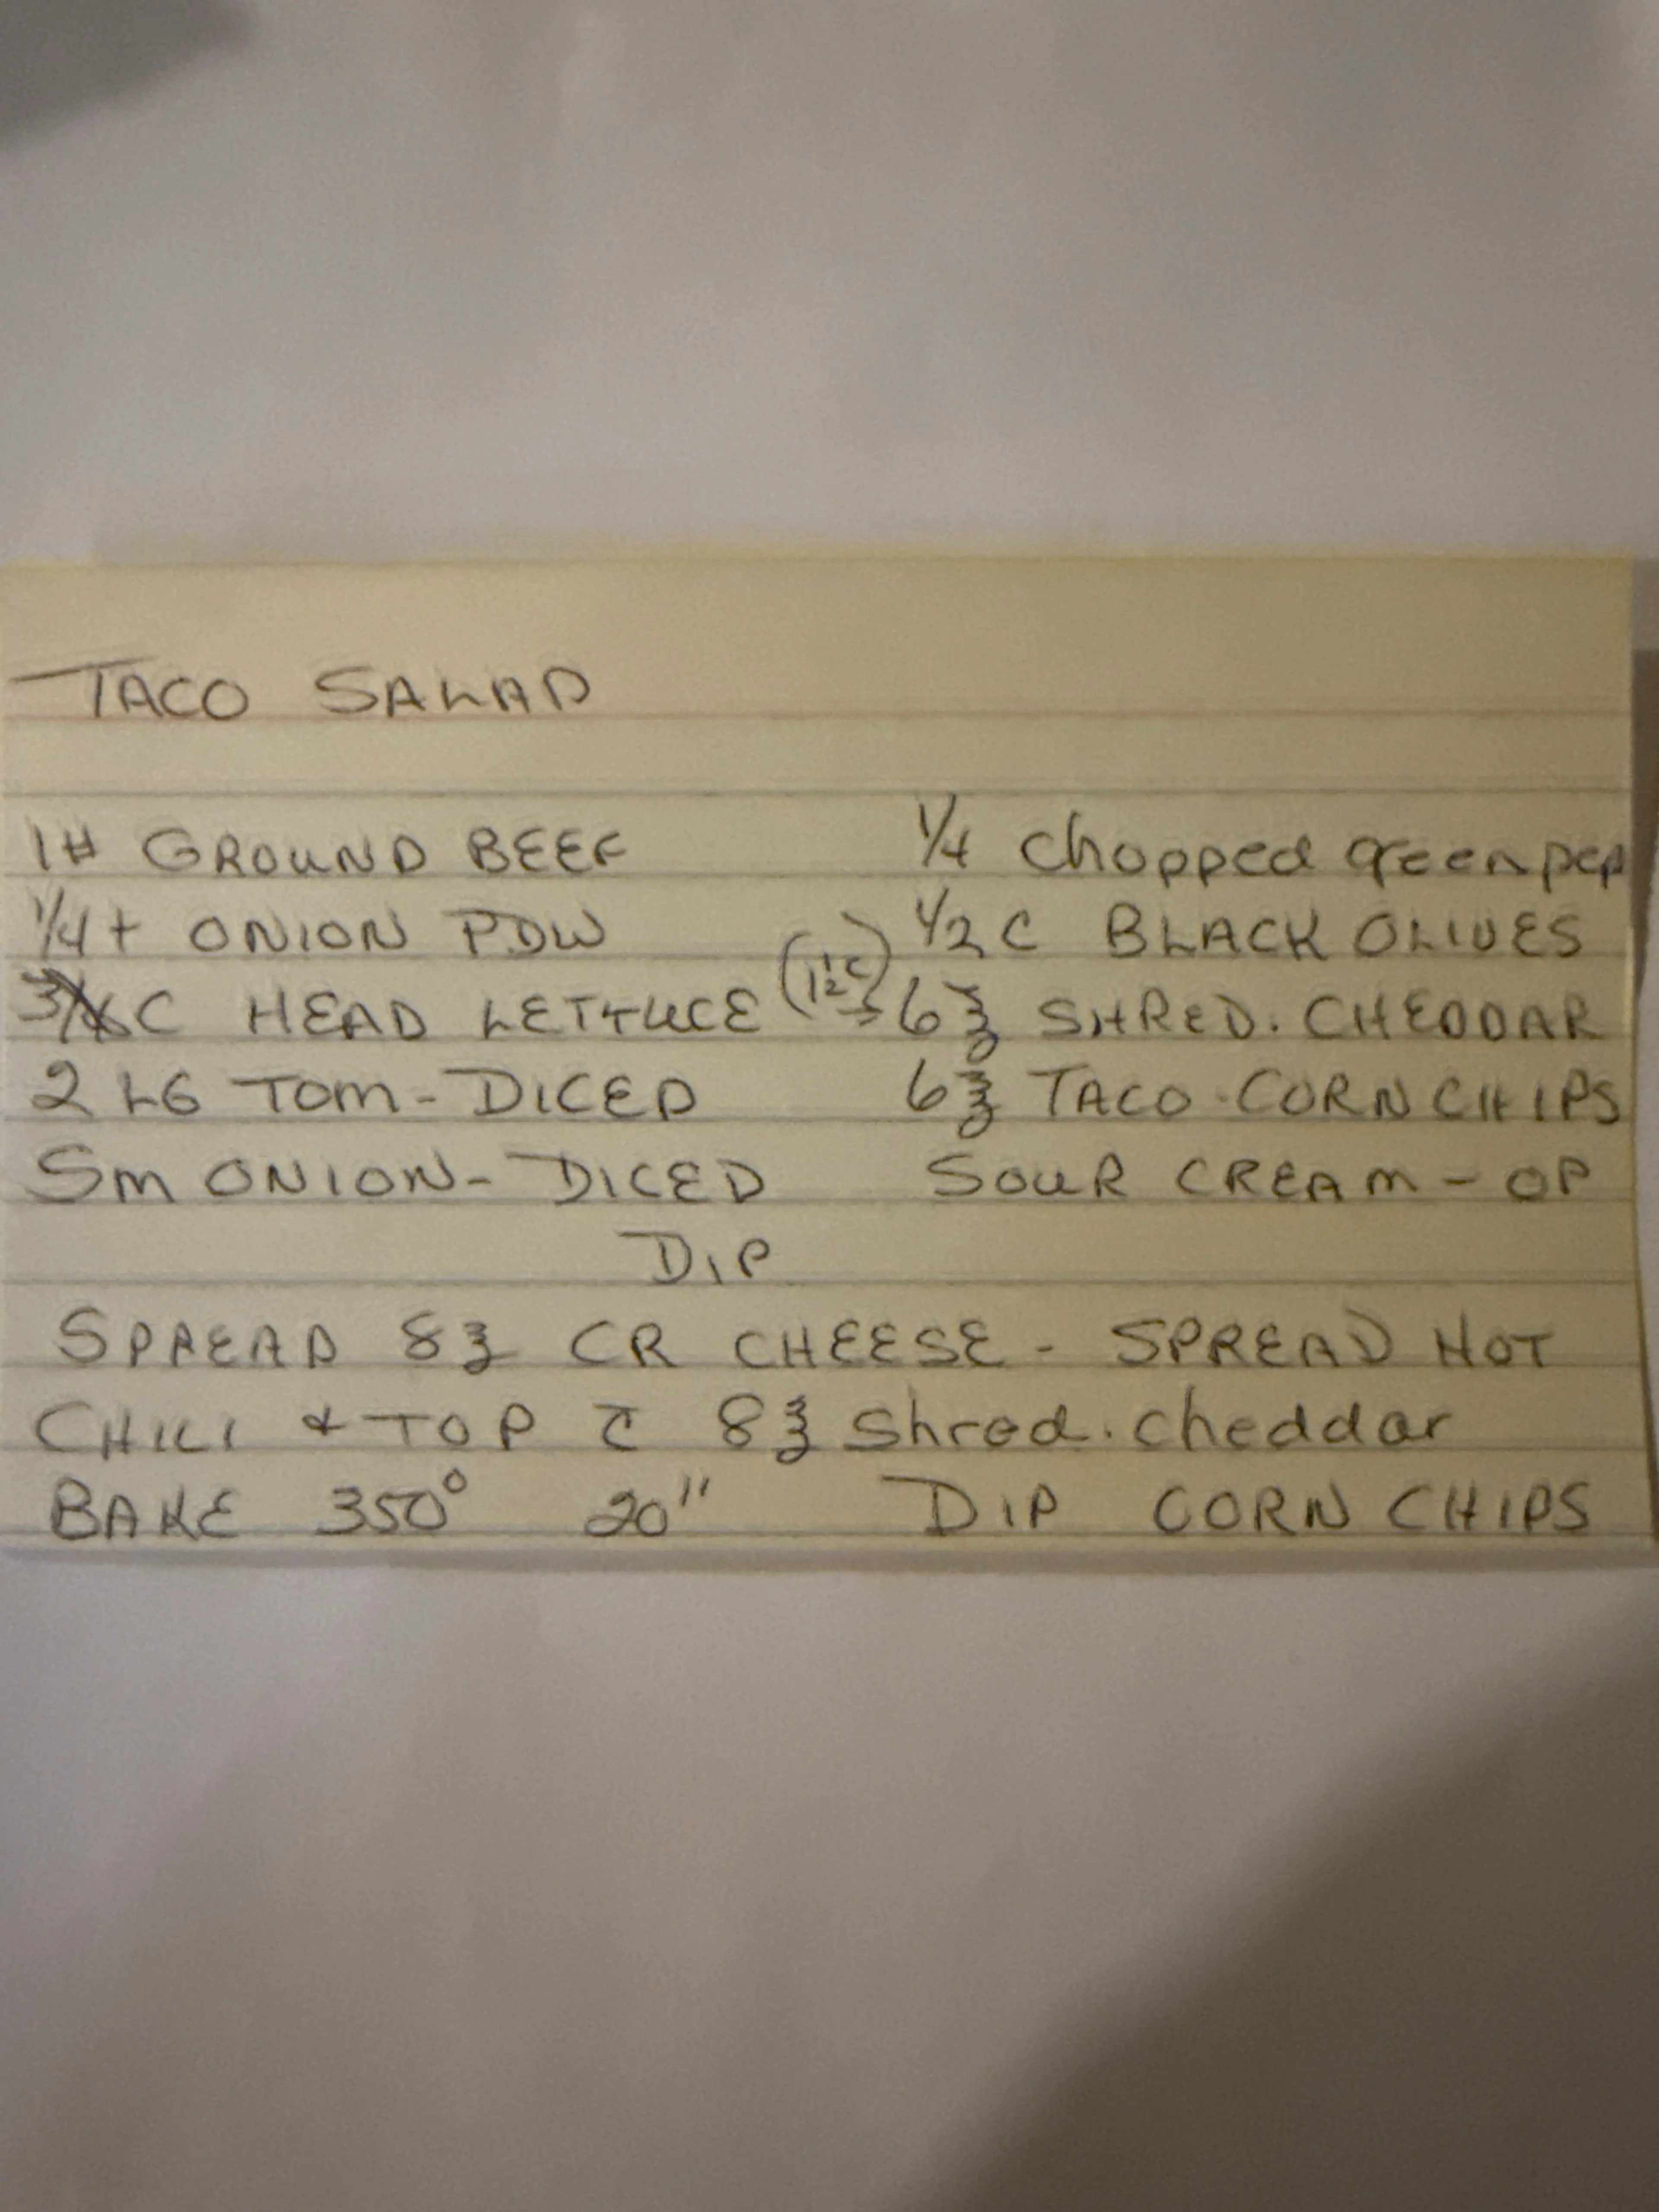 TACO SALAD
1# GROUND BEEF 1/4 chopped green pep
1/4 t ONION PDW 1/2 C BLACK OLIVES
C HEAD LETTUCE (1 1/2 C) → 6 ℥ SHRED. CHEDDAR
2 LG TOM - DICED 6 ℥ TACO CORN CHIPS
Sm ONION - DICED SOUR CREAM - OP
DIP
SPREAD 8 ℥ CR CHEESE - SPREAD HOT
CHILI & TOP c̄ 8 ℥ Shred. cheddar
BAKE 350° 20" DIP CORN CHIPS